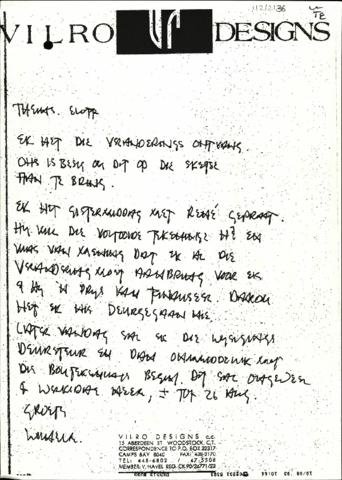 VILRO DESIGNS
EK HET DIE VERANDERINGE ONTVANG.
ONS IS BESIG OM DIT OP DIE SKETSE
AAN TE BRING.
EK HET GISTERMIDDAG MET RENÉ GEPRAAT.
HY WIL DIE VOLTOOIDE TEKENINGE HÊ EN
WAS VAN MENING DAT EK AL DIE
VERANDERING MOET AANBRING VOOR EK
& HY 'N PRYS KAN FINALISEER. DAAROM
HET EK NIE DEURGEGAAN NIE.
LATER VANDAG SAL EK DIE WYSIGINGS
DEURSTUUR EN DAN ONMIDDELLIK MET
DIE BOUTEKENINGE BEGIN. DIT SAL ONGEVEER
4 WERKSDAE NEEM, ± TOT 26 AUG.
GROETE
VILRO DESIGNS c.c.
15 ABERDEEN ST WOODSTOCK, C.T.
CORRESPONDENCE TO P.O. BOX 32217
CAMPS BAY 8040 FAX: 438-2170
TEL: 448-6802 / 47-3508
MEMBER: V. HAVEL REG. CK 90/26771/23